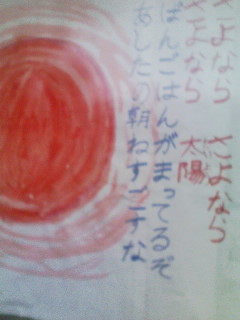 さよなら　さよなら
さよなら　太陽
ばんごはんがまってるぞ
あしたの朝ねすごすな